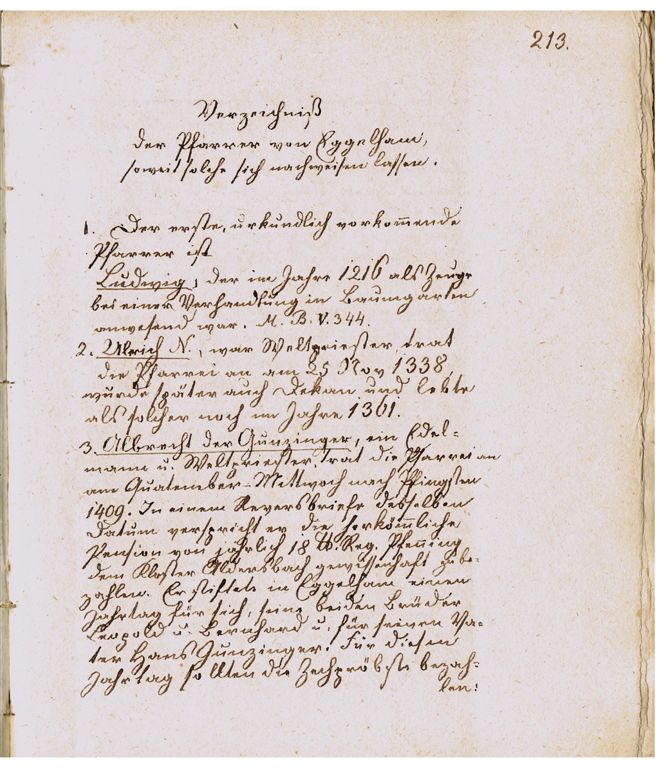 213.
Verzeichniß
der Pfarrer von Eggelham,
soweit solche sich nachweisen lassen.
1. Der erste, urkundlich vorkom̅ende
Pfarrer ist
Ludwig, der im Jahre 1216 als Zeuge
bei einer Verhandlung in Baumgarten
anwesend war. M. B. V. 344.
2. Ulrich N., war Weltpriester, trat
die Pfarrei an am 25 Nov 1338,
wurde später auch Dekan und lebte
als solcher noch im Jahre 1361.
3. Albrecht der Gunzinger, ein Edel-
mann u. Weltpriester, trat die Pfarrei an
am Quatember-Mittwoch nach Pfingsten
1409. In einem Reversbriefe desselben
Datum verspricht er die herköm̅liche
Pension von jährlich 18 ℔. Reg. Pfen̅ing
dem Kloster Aldersbach gewissenhaft zu be-
zahlen. Er stiftete in Eggelham einen
Jahrtag für sich, seine beiden Brüder
Leopold u. Bernhard u. für seinen Va-
ter Hans Gunzinger. Für diesen
Jahrtag sollten die Zechpröbste bezah-
len: